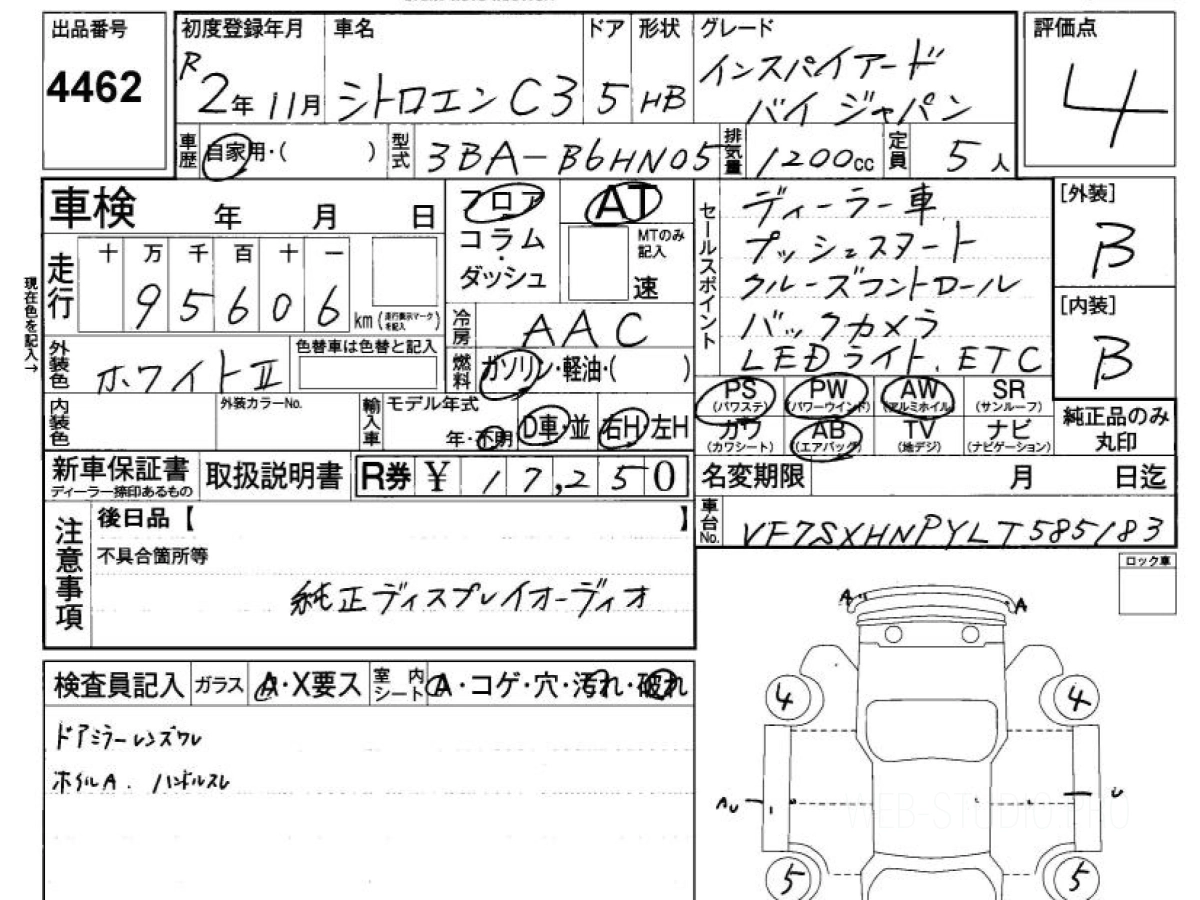 出品番号
4462
初度登録年月
R2年11月
車名
シトロエン C3
ドア
5
形状
HB
グレード
インスパイアード
バイ ジャパン
評価点
4
車歴
自家用・( )
型式
3BA-B6HN05
排気量
1200cc
定員
5人
車検 年 月 日
フロア
コラム
・
ダッシュ
AT
MTのみ
記入
速
セールスポイント
ディーラー車
プッシュスタート
クルーズコントロール
バックカメラ
LEDライト. ETC
[外装]
B
[内装]
B
現在色を記入→
走行
十 万 千 百 十 一
9 5 6 0 6
km(走行表示マークを記入)
冷房
AAC
外装色
ホワイトII
色替車は色替と記入
燃料
ガソリン・軽油・( )
PS
(パワステ)
PW
(パワーウインド)
AW
(アルミホイル)
SR
(サンルーフ)
カワ
(カワシート)
AB
(エアバッグ)
TV
(地デジ)
ナビ
(ナビゲーション)
純正品のみ
丸印
内装色
外装カラーNo.
輸入車
モデル年式
年・不明
D車・並
右H・左H
新車保証書
ディーラー捺印あるもの
取扱説明書
R券 ¥ 17,250
名変期限 月 日迄
車台No.
VF7SXHNPYLT585183
注意事項
後日品【 】
不具合箇所等
純正ディスプレイオーディオ
ロック車
検査員記入
ガラス
A・X要ス
室内
シート
A・コゲ・穴・汚れ・破れ
ドアミラーレンズワレ
ホイルA. ハンドルスレ
A A
4 4
AU U
5 5
WEB-STUDIO.PRO